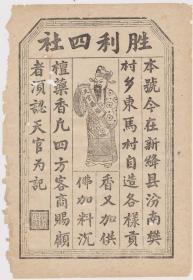 胜利四社
本號今在新绛县汾南樊
村乡東馬村自造各樣貢
香又加供
佛加料沉
檀藥香凢四方客商賜顧
者須認天官为記